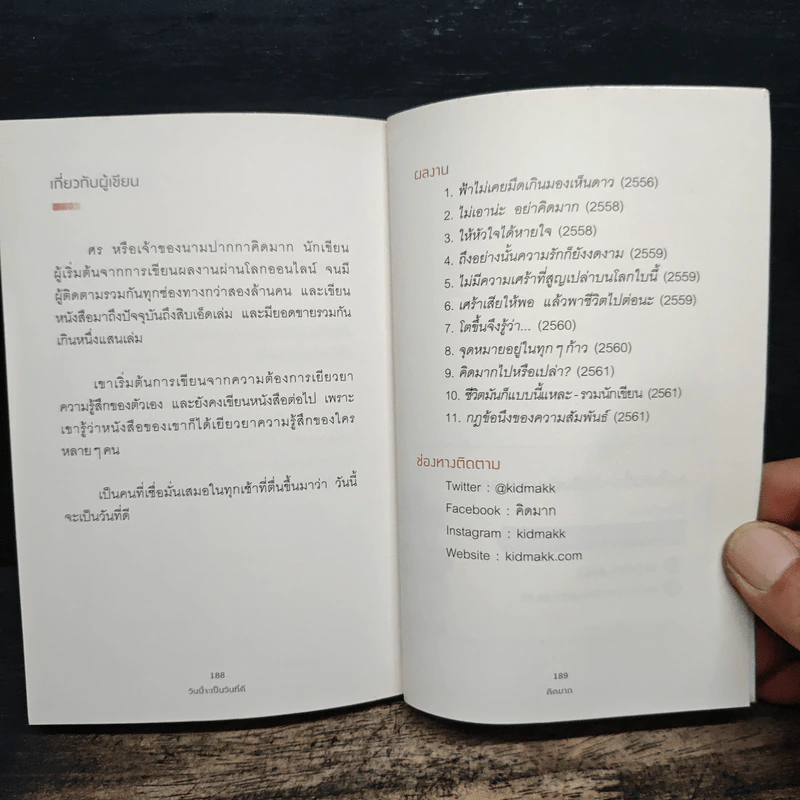 เกี่ยวกับผู้เขียน
ศร หรือเจ้าของนามปากกาคิดมาก นักเขียน
ผู้เริ่มต้นจากการเขียนผลงานผ่านโลกออนไลน์ จนมี
ผู้ติดตามรวมกันทุกช่องทางกว่าสองล้านคน และเขียน
หนังสือมาถึงปัจจุบันถึงสิบเอ็ดเล่ม และมียอดขายรวมกัน
เกินหนึ่งแสนเล่ม
เขาเริ่มต้นการเขียนจากความต้องการเยียวยา
ความรู้สึกของตัวเอง และยังคงเขียนหนังสือต่อไป เพราะ
เขารู้ว่าหนังสือของเขาก็ได้เยียวยาความรู้สึกของใคร
หลายๆ คน
เป็นคนที่เชื่อมั่นเสมอในทุกเช้าที่ตื่นขึ้นมาว่า วันนี้
จะเป็นวันที่ดี
188
วันนี้จะเป็นวันที่ดี
ผลงาน
1. ฟ้าไม่เคยมืดเกินมองเห็นดาว (2556)
2. ไม่เอาน่ะ อย่าคิดมาก (2558)
3. ให้หัวใจได้หายใจ (2558)
4. ถึงอย่างนั้นความรักก็ยังงดงาม (2559)
5. ไม่มีความเศร้าที่สูญเปล่าบนโลกใบนี้ (2559)
6. เศร้าเสียให้พอ แล้วพาชีวิตไปต่อนะ (2559)
7. โตขึ้นจึงรู้ว่า... (2560)
8. จุดหมายอยู่ในทุก ๆ ก้าว (2560)
9. คิดมากไปหรือเปล่า? (2561)
10. ชีวิตมันก็แบบนี้แหละ - รวมนักเขียน (2561)
11. กฎข้อนึงของความสัมพันธ์ (2561)
ช่องทางติดตาม
Twitter : @kidmakk
Facebook : คิดมาก
Instagram : kidmakk
Website : kidmakk.com
189
คิดมาก